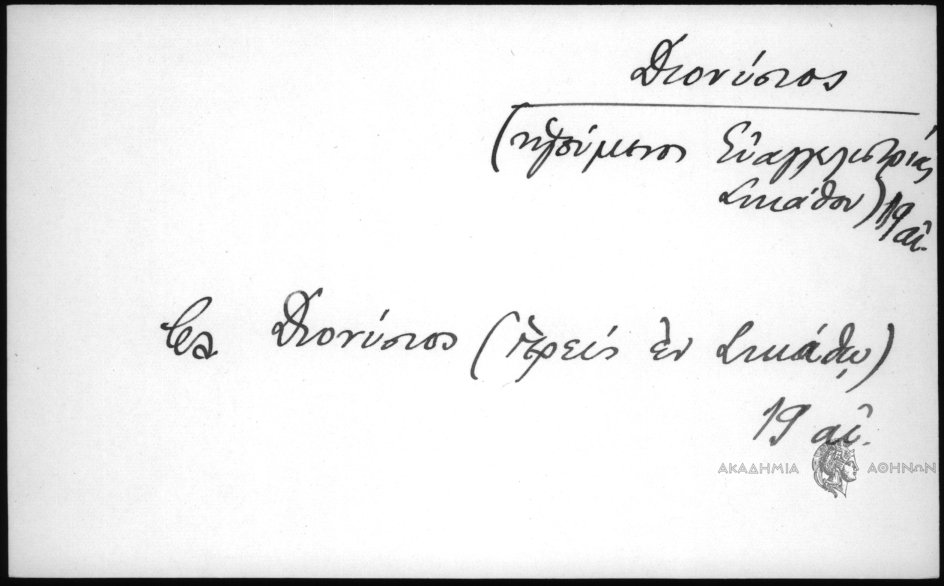 Διονύσιος
(ἡγούμενος Εὐαγγελιστρίας
Σικάθου) 19 αἰ.
βλ Διονύσιος (ἱερεὺς ἐν Σικάθῳ)
19 αἰ.
ΑΚΑΔΗΜΙΑ ΑΘΗΝΩΝ